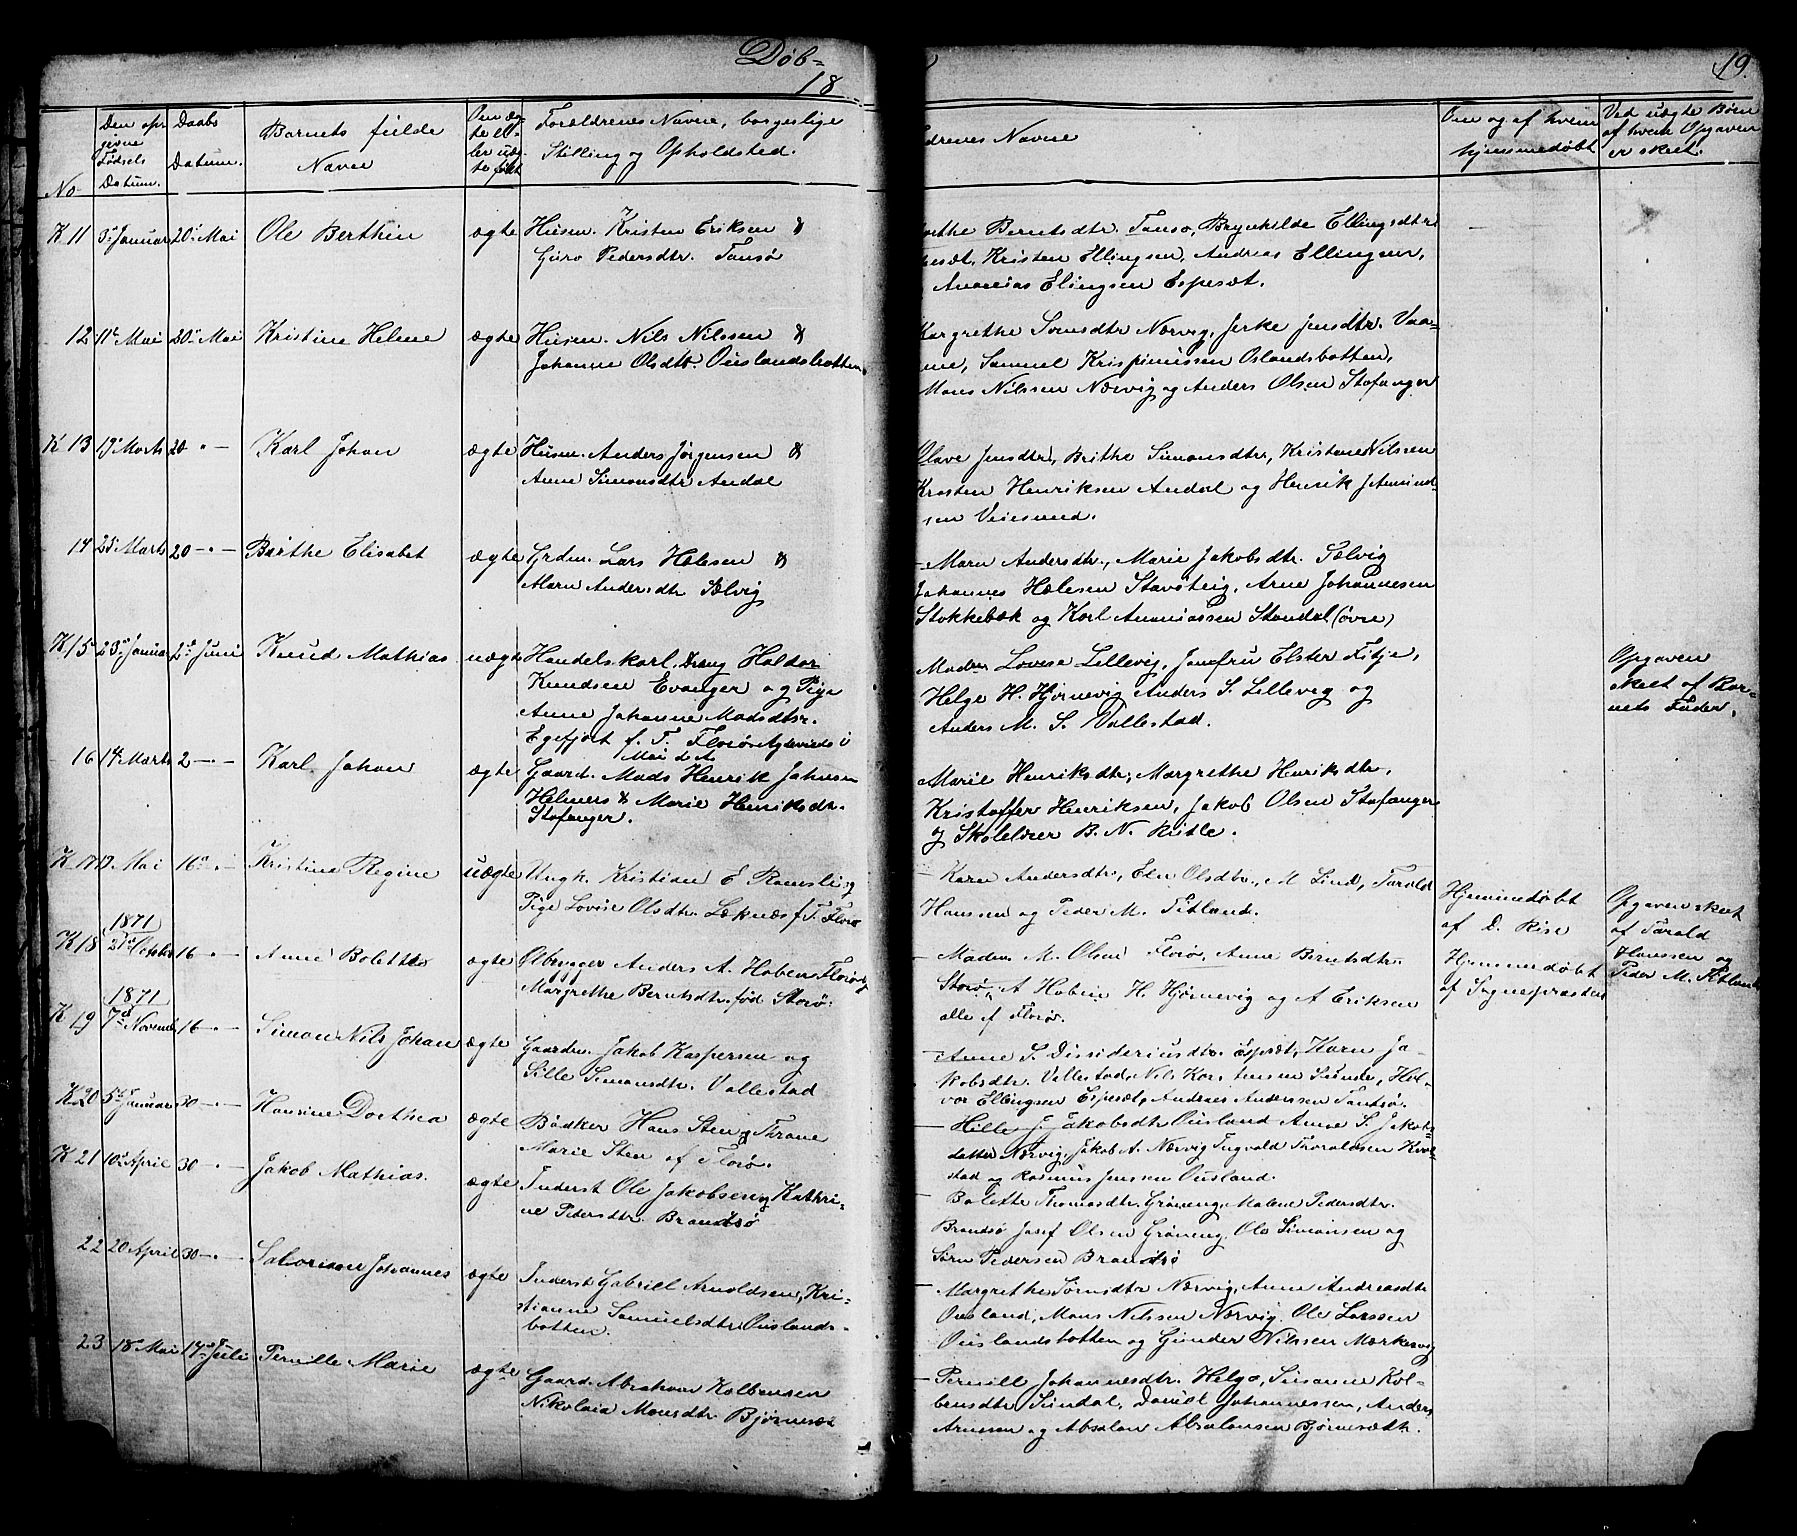 Døb-
18
19.
No
Den opgivne Fødsels Datum.
Daabs Datum.
Barnets fulde Navne
Om ægte eller uægte født
Forældrenes Navne, borgerlige Stilling og Opholdsted.
drenes Navne
Om og af hvem hjemmedøbt
Ved uægte Børn af hvem Opgaven er skeet.
K 11 3die Januar 20de Mai Ole Berthin ægte Husm. Kristen Eriksen &
Guro Pedersdtr. Tansø
Berntsdtr. Tansø, Brynhilde Ellingsdtr
Kristen Ellingsen, Andreas Ellingsen,
Ananias Elingsen Espeset.
12 11te Mai 20de Mai Kristine Helene ægte Husm. Nils Nilssen &
Johanne Olsdtr. Ouslandsbotten
Margrethe Sørnsdtr Nærvig, Jerke Jensdtr. Vaa-
ne, Samuel Krispinussen Oslandsbotten,
Mons Nilssen Nærvig og Anders Olsen Stafanger
K 13 19de Marts 20 " - Karl Johan ægte Husm. Anders Jørgensen &
Anne Simonsdtr Andal
Olave Jensdtr, Brithe Simonsdtr, Kristen Nilssen
Kristen Henriksen Andal og Henrik J
sen Veiesund.
14 23de Marts 20 - " - Birthe Elisabet ægte Grdm. Lars Helesen &
Marn Andersdtr Sælvig
- Marn Andersdtr., Marie Jakobsdtr. Sælvig
Johannes Hælesen Stavsteig, Arne Johannesen
Stokkebæk og Karl Ananiassen Standal (øvre)
K 15 23de Januar 2den Juni Knud Mathias uægte Handelskarl, Dreng Haldor
Knudsen Evanger og Pige
Anne Johanne Madsdtr.
Egefjort f. T. Florø
Mai d. A.
Madm. Lovise Lillevig, Jomfru Elster Fitje,
Helge H. Hjørnevig Anders S. Lillevig og
Anders M. S. Vallestad.
Opgaven
skeet af Bar-
nets Fader.
16 14de Marts 2 - " - Karl Johan ægte Gaard. Mads Henrik Johnsen
Helmers & Marie Henriksdtr.
Stafanger.
Marie Henriksdtr, Margrethe Henriksdtr,
Kristoffer Henriksen, Jakob Olsen Stafanger
og Skolelærer B. N. Ritle.
K 17 12 Mai 16de " - Kristine Regine uægte Ungk. Kristian E Ramsli og
Pige Lovise Olsdtr. Leknæs f. T. Florø
- Karn Andersdtr, Eln Olsdtr., M. Lind, Tarald
Hanssen og Peder M. Titland.
Hjemmedøbt
af D. Rise
Opgaven skeet
af Tarald
Hanssen og
Peder M. Titland
K 18 1871
21de October 16 - " - Anne Bolette ægte Ølbrygger Anders A. Haben Florø og
Margrethe Berntsdtr. fød Storø.
- Madm. M. Olsen Florø, Anne Berntsdtr.
Storø, A Haben H. Hjørnevig og A Eriksen
alle af Florø.
Hjemmedøbt
af Sognepræsten
K 19 1871
7de November 16 - " - Simon Nils Johan ægte Gaardm. Jakob Kaspersen og
Sille Simonsdtr. Vallestad
- Anne S. Dissideriusdtr. Espesæt, Karn Ja-
kobsdtr. Vallestad, Nils Karstensen Sunde, Hal-
vor Ellingsen Espesæt, Andreas Andersen Tansø.
K 20 5te Januar 30 - " - Hansine Dorthea ægte Bødker Hans Sten og Thrane
Marie Sten af Florø.
- Hille J. Jakobsdtr Ousland Anne S. Jakobs-
datter Nærvig, Jakob A. Nærvig Ingvald Thoraldsen Kvel-
stad og Rasmus Jensen Ousland.
K 21 10de April 30 - " - Jakob Mathias. ægte Inderst Ole Jakobsen og Kathri-
ne Pedersdtr. Brandsø
- Bolette Thomasdtr. Grøneng, Malene Pedersdtr.
Brandsø Josef Olsen Grøneng, Ole Simonsen og
Sørn Pedersen Brandsø
22 20 April 30 - " - Salomon Johannes ægte Inderst Gabriell Arnoldsen, Kri-
stianne Samuelsdtr. Ouslands-
botten.
- Margrethe Sørnsdtr Nærvig, Anne Andreasdtr
Ousland, Mons Nilssen Nærvig, Ole Larssen
Ouslandsbotten og Gunder Nilssen Markevig
23 18de Mai 14de Juli Pernille Marie ægte Gaard. Abraham Kolbensen
Nikolaia Monsdtr Bjørnesæt
- Pernill Johannesdtr. Helgø, Susanne Kol-
bensdtr Sundal, Daniel Johannessen, Anders
Arnesen og Absalon Absalonsen Bjørnesæth.